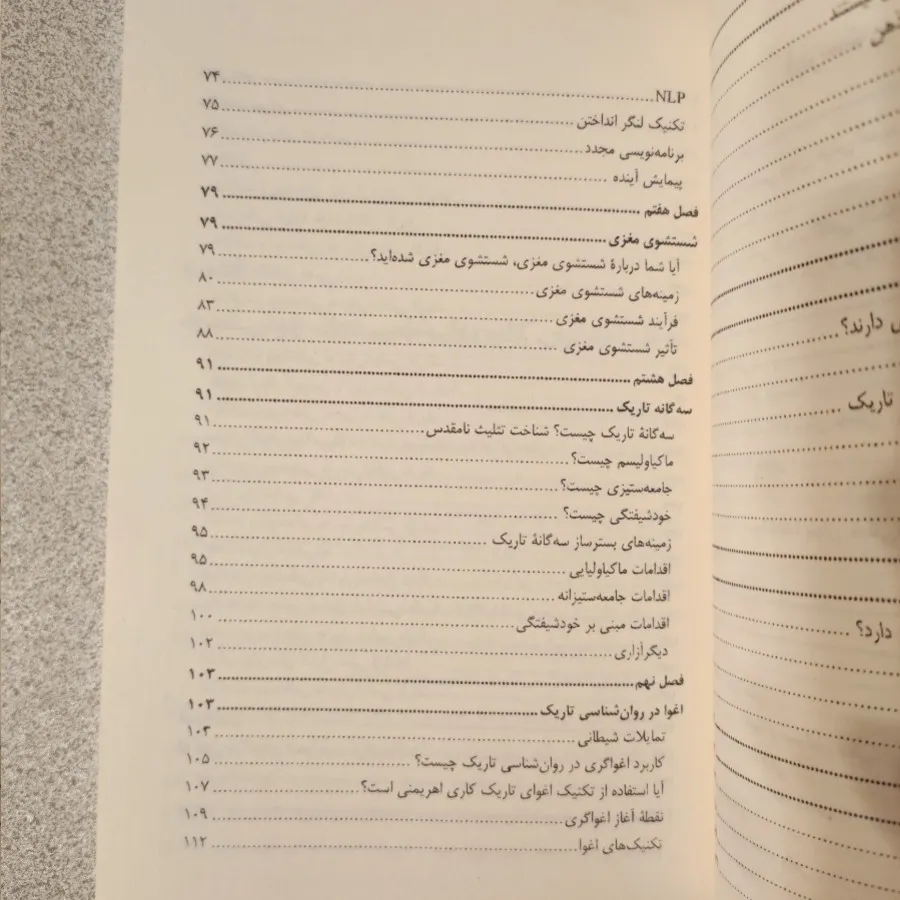 NLP ........ ۷۴
تکنیک لنگر انداختن ........ ۷۵
برنامه‌نویسی مجدد ........ ۷۶
پیمایش آینده ........ ۷۷
فصل هفتم ........ ۷۹
شستشوی مغزی ........ ۷۹
آیا شما دربارهٔ شستشوی مغزی، شستشوی مغزی شده‌اید؟ ........ ۷۹
زمینه‌های شستشوی مغزی ........ ۸۰
فرآیند شستشوی مغزی ........ ۸۳
تأثیر شستشوی مغزی ........ ۸۸
فصل هشتم ........ ۹۱
سه‌گانه تاریک ........ ۹۱
سه‌گانهٔ تاریک چیست؟ شناخت تثلیث نامقدس ........ ۹۱
ماکیاولیسم چیست؟ ........ ۹۲
جامعه‌ستیزی چیست؟ ........ ۹۳
خودشیفتگی چیست؟ ........ ۹۴
زمینه‌های بسترساز سه‌گانهٔ تاریک ........ ۹۵
اقدامات ماکیاولیایی ........ ۹۵
اقدامات جامعه‌ستیزانه ........ ۹۸
اقدامات مبنی بر خودشیفتگی ........ ۱۰۰
دیگرآزاری ........ ۱۰۲
فصل نهم ........ ۱۰۳
اغوا در روان‌شناسی تاریک ........ ۱۰۳
تمایلات شیطانی ........ ۱۰۳
کاربرد اغواگری در روان‌شناسی تاریک چیست؟ ........ ۱۰۵
آیا استفاده از تکنیک اغوای تاریک کاری اهریمنی است؟ ........ ۱۰۷
نقطهٔ آغاز اغواگری ........ ۱۰۹
تکنیک‌های اغوا ........ ۱۱۲
دارند؟
تاریک
دارد؟